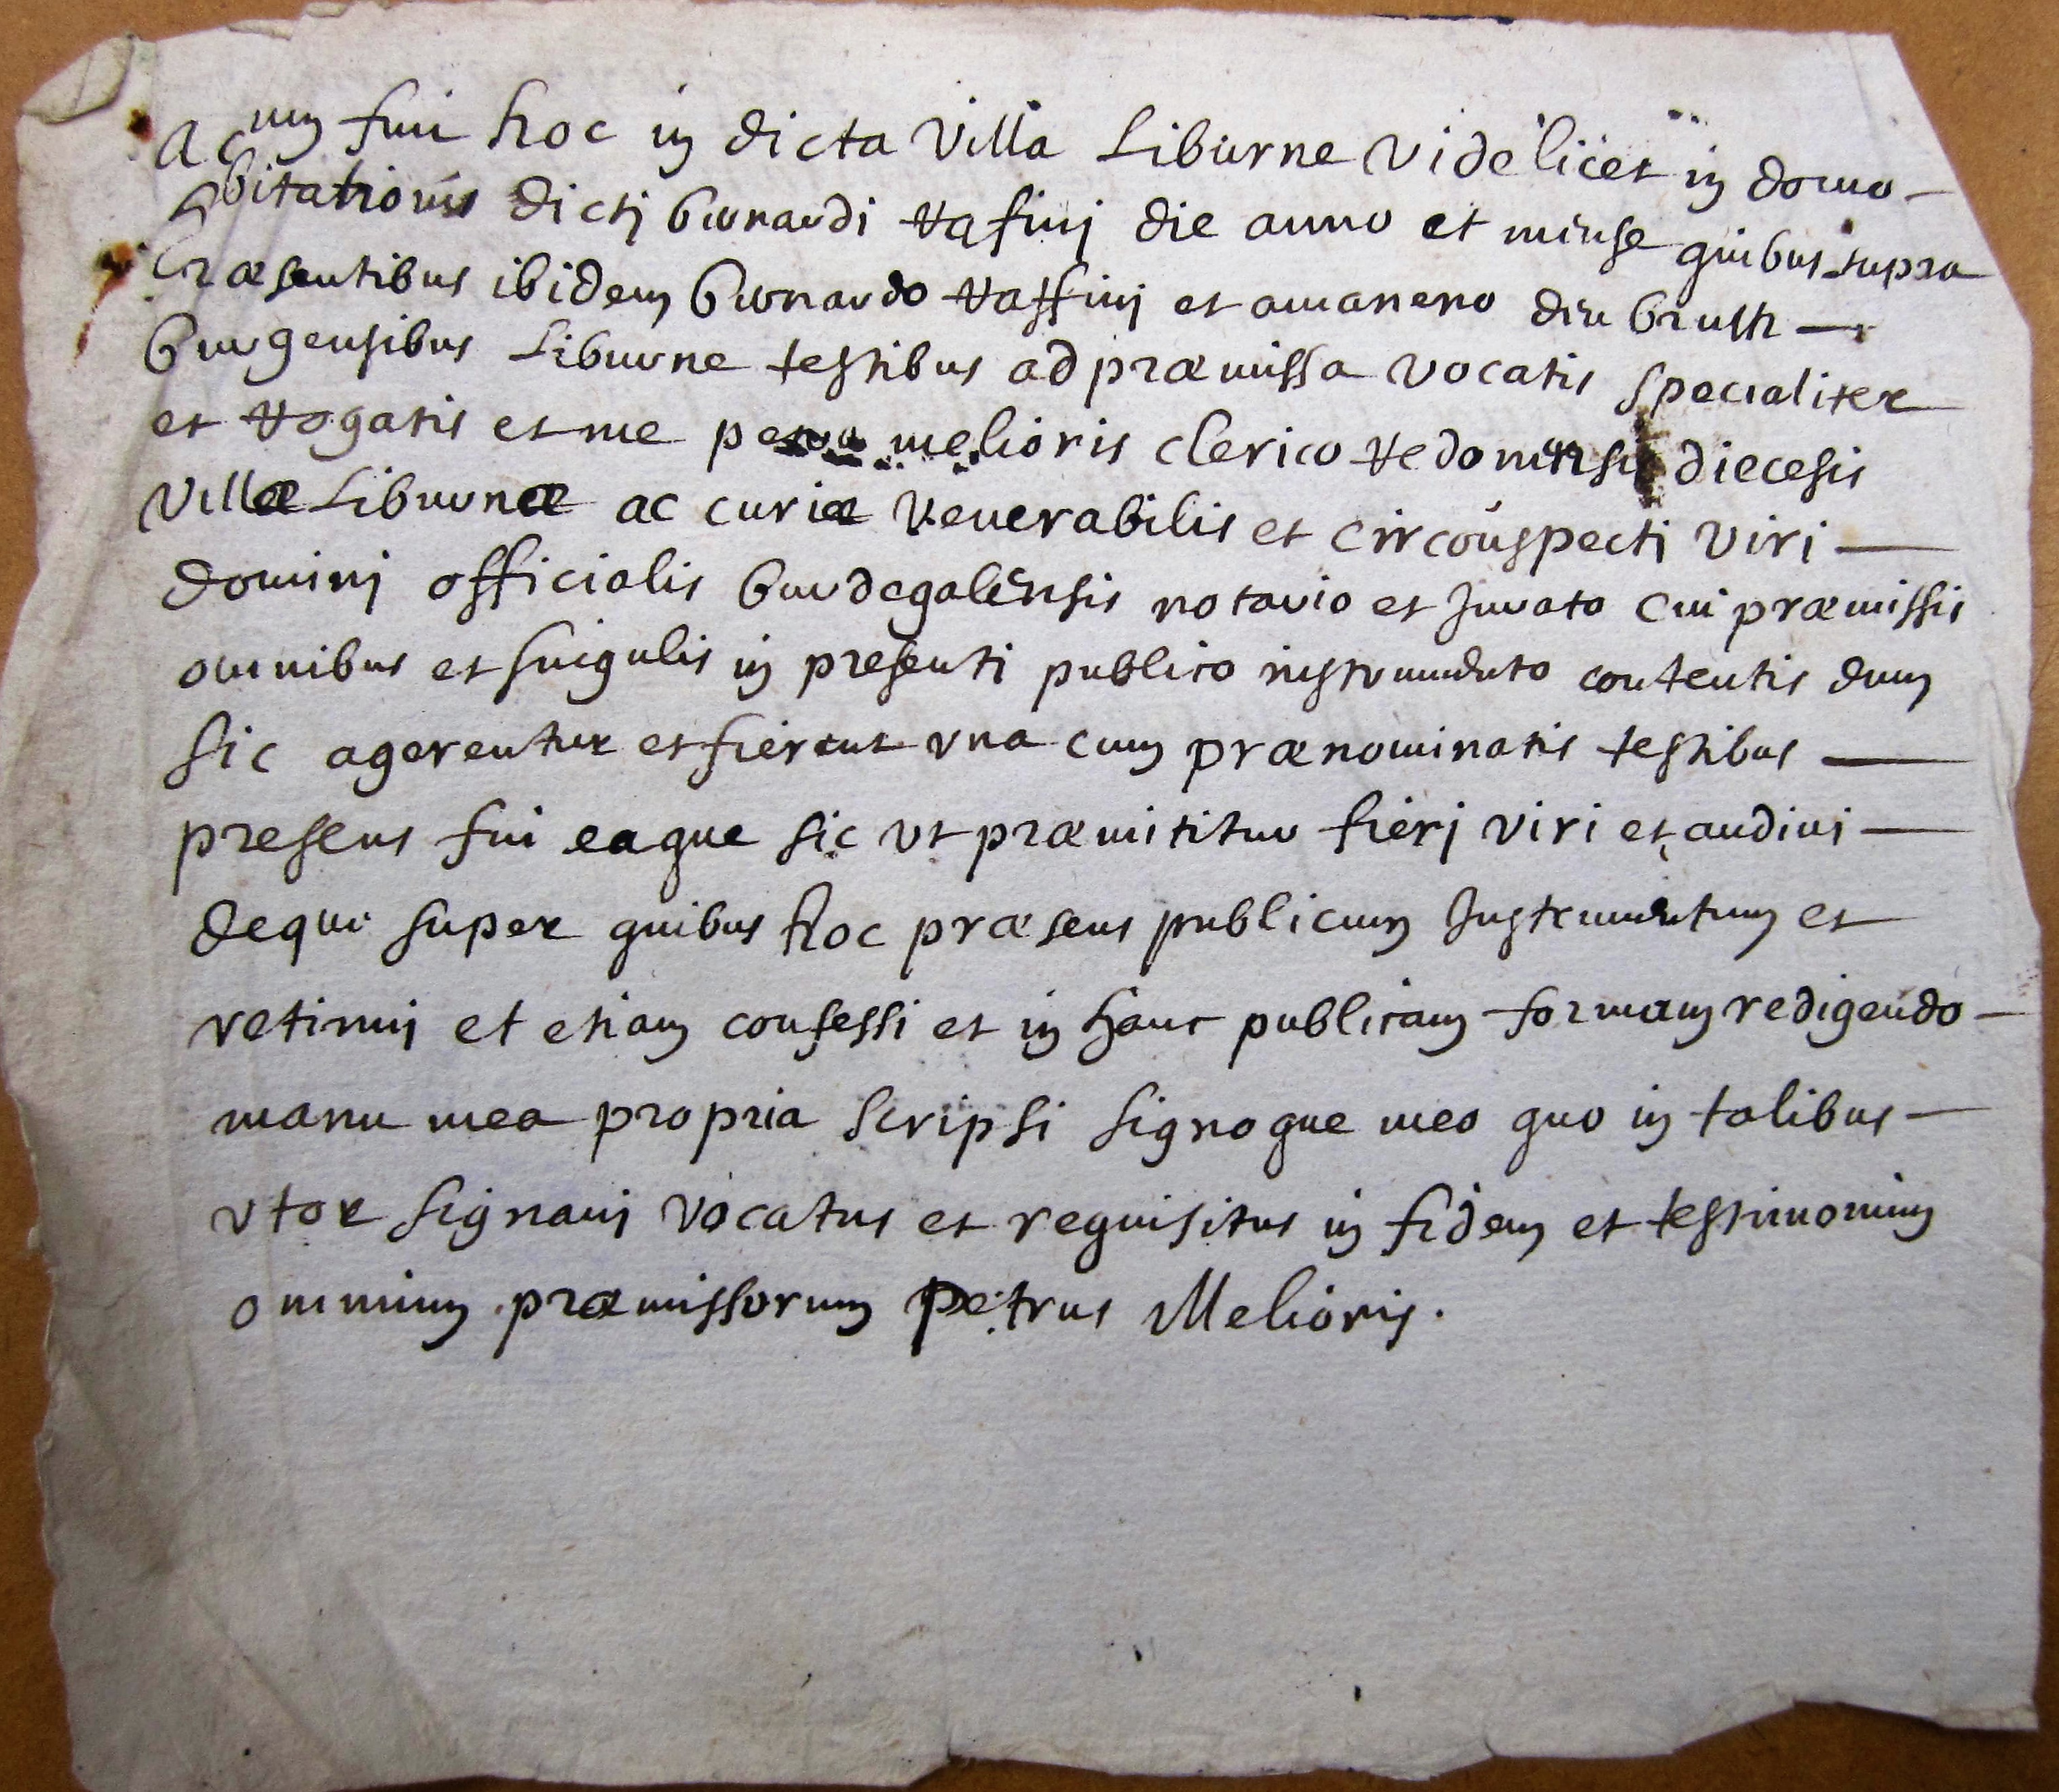 Actum fuit hoc in dicta Villa Liburne videlicet in domo
habitationis dicti Bernardi Raffini die anno et mense quibus supra
Præsentibus ibidem Bernardo Raffini et amaneno
Burgensibus Liburne testibus ad præmissa vocatis specialiter
et rogatis et me petro melioris clerico Redonensis diecesis
Villæ Liburnæ ac curiæ Venerabilis et circonspecti viri
domini officialis Burdegalensis notario et Jurato Cui præmissis
omnibus et singulis in presenti publico instrumento contentis dum
sic agerentur et fierent vna cum prænominatis testibus
presens fui eaque sic vt præmititur fieri viri et audivi
deque super quibus hoc præsens publicum Instrumentum et
retinui et etiam confessi et in hanc publicam formam redigendo
manu mea propria scripsi signoque meo quo in talibus
vtor signavi vocatus et requisitus in fidem et testimonium
omnium præmissorum Petrus Melioris.